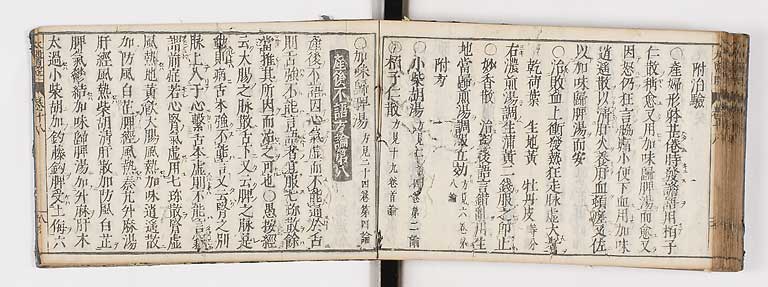 附治驗
○產婦形體甚倦時發譫語用柏子
仁散稍愈又用加味歸脾湯而愈又
因怒仍狂言脇痛小便下血用加味
逍遙散以清肝火養肝血頓瘥又佐
以加味歸脾湯而安
○治敗血上衝發熱狂走脉虛大者
乾荷葉 生地黃 牡丹皮 等分
右濃煎湯調生蒲黃二錢服之即止
○妙香散 治產後語言錯亂用生
地當歸煎湯調服立効 方見六卷第八論
附方
○小柴胡湯 方見 卷第二論
○柏子仁散 方見十九卷首論
○加味歸脾湯 方見二十四卷第四論
產後不語方論第八
產後不語因心氣虛而不能通於舌
則舌強不能言語者宜服七珍散餘
當推其所因而治之可也○愚按經
云大腸之脉散舌下又云脾之脉是
動則病舌本強不能言又云腎之別
脉上入于心繫舌本虛則不能言竊
謂前症若心腎氣虛用七珍散腎虛
風熱地黃飲大腸風熱加味逍遙散
加防風白芷脾經風熱秦艽升麻湯
肝經風熱柴胡清肝散加防風白芷
脾氣鬱結加味歸脾湯加升麻肝木
太過小柴胡加釣藤鈎脾受土侮六